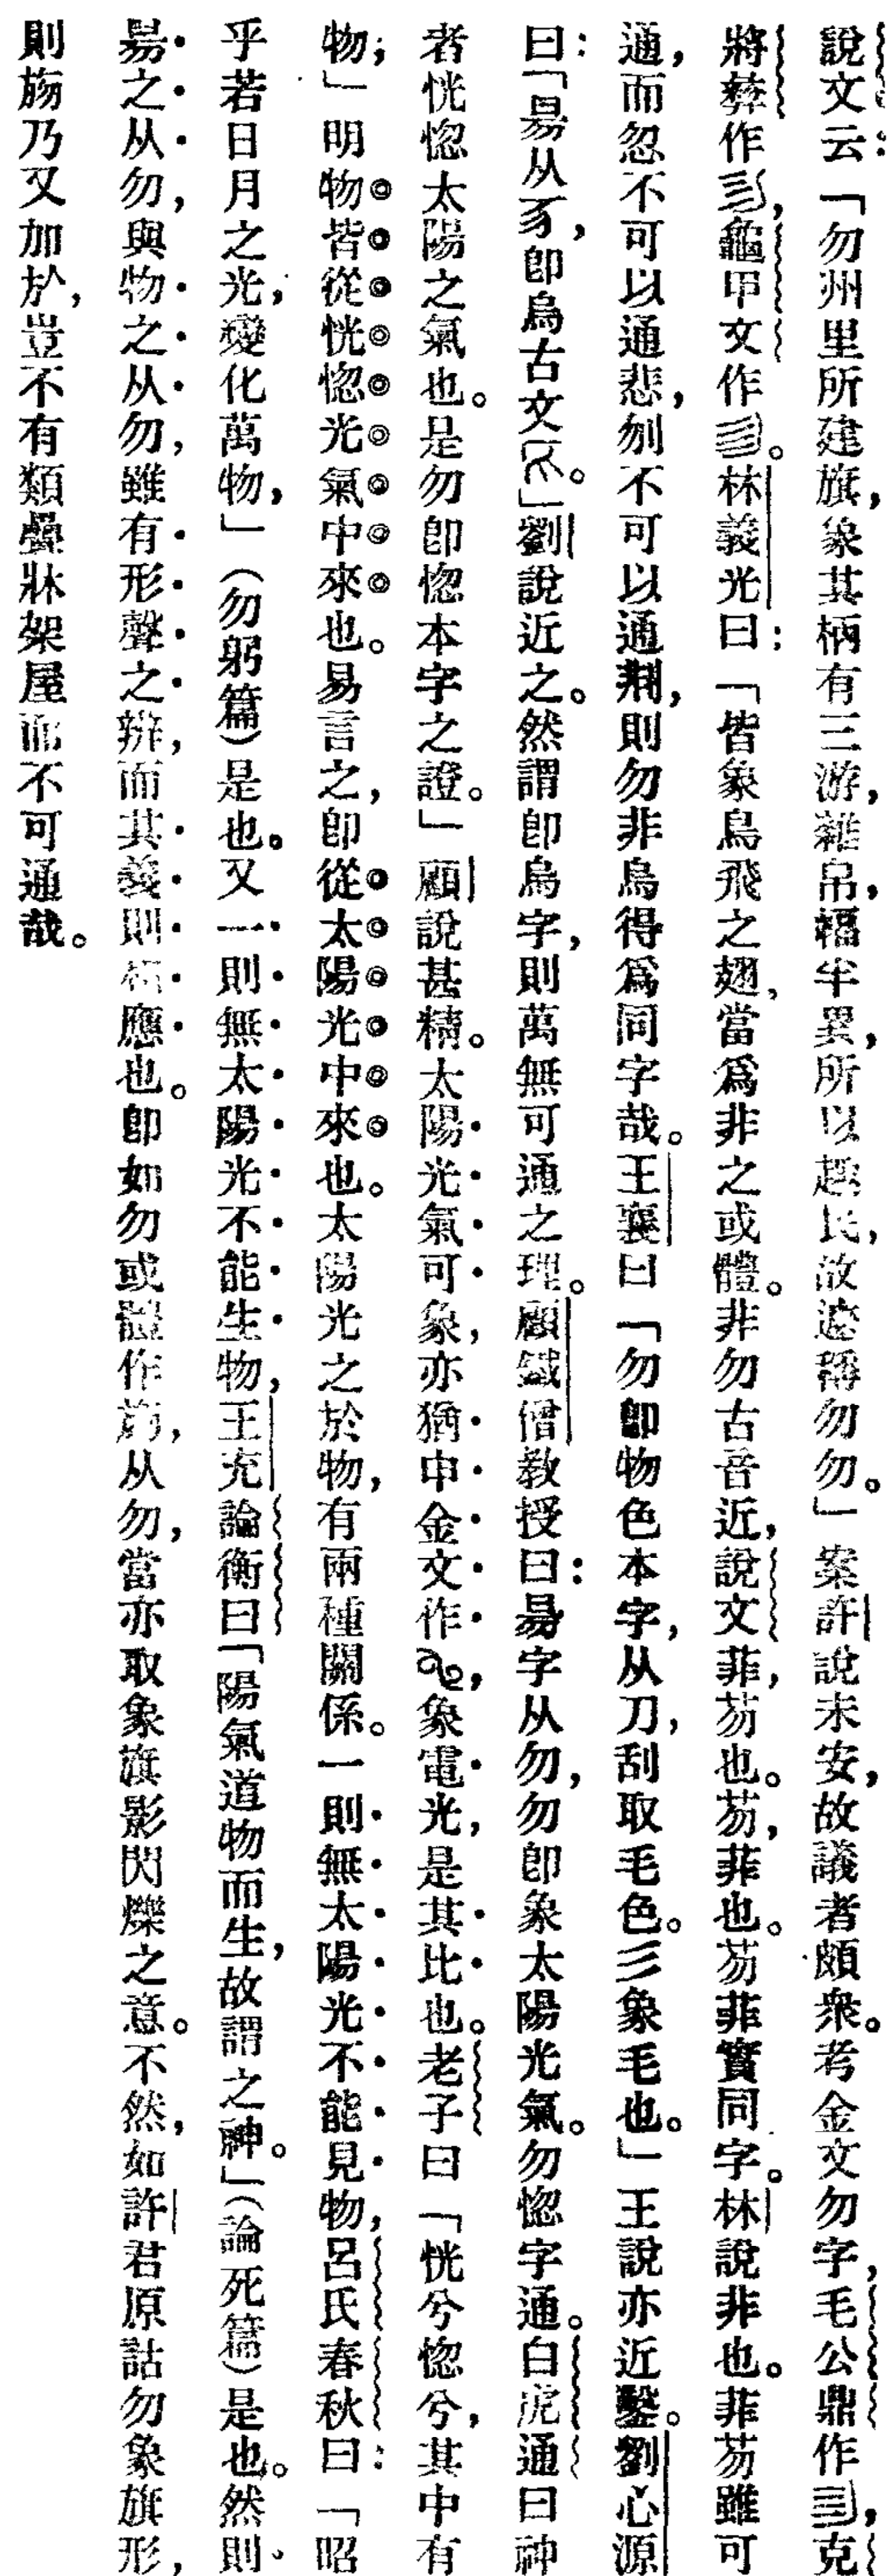 說文云：「勿州里所建旗，象其柄有三游，雜帛，幅半異，所以趣民，故遽稱勿勿。」案許說未安，故議者頗衆。考金文勿字，毛公鼎作，克
將彝作，龜甲文作。林義光曰：「皆象鳥飛之翅，當爲非之或體。非勿古音近，說文菲，芴也。芴，菲也。芴菲實同字。林說非也。菲芴雖可
通，而忽不可以通悲，刎不可以通剕，則勿非烏得爲同字哉。王襄曰「勿卽物色本字，从刀，刮取毛色。彡象毛也。」王說亦近鑿。劉心源
曰：「昜从豸，卽烏古文。」劉說近之。然謂卽烏字，則萬無可通之理。顧鐵僧教授曰：昜字从勿，勿卽象太陽光氣。勿惚字通。白虎通曰神
者恍惚太陽之氣也。是勿卽惚本字之證。」顧說甚精。太陽光氣可象，亦猶申金文作，象電光，是其比也。老子曰「恍兮惚兮，其中有
物；」明物皆從恍惚光氣中來也。易言之，卽從太陽光中來也。太陽光之於物，有兩種關係。一則無太陽光不能見物，呂氏春秋曰：「昭
乎若日月之光，變化萬物，」（勿躬篇）是也。又一則無太陽光不能生物，王充論衡曰「陽氣道物而生，故謂之神。」（論死篇）是也。然則
昜之从勿，與物之从勿，雖有形聲之辨，而其義則相應也。卽如勿或體作㫚，从勿，當亦取象旗影閃爍之意。不然，如許君原詁勿象旗形，
則㫚乃又加㫃，豈不有類疊牀架屋而不可通哉。